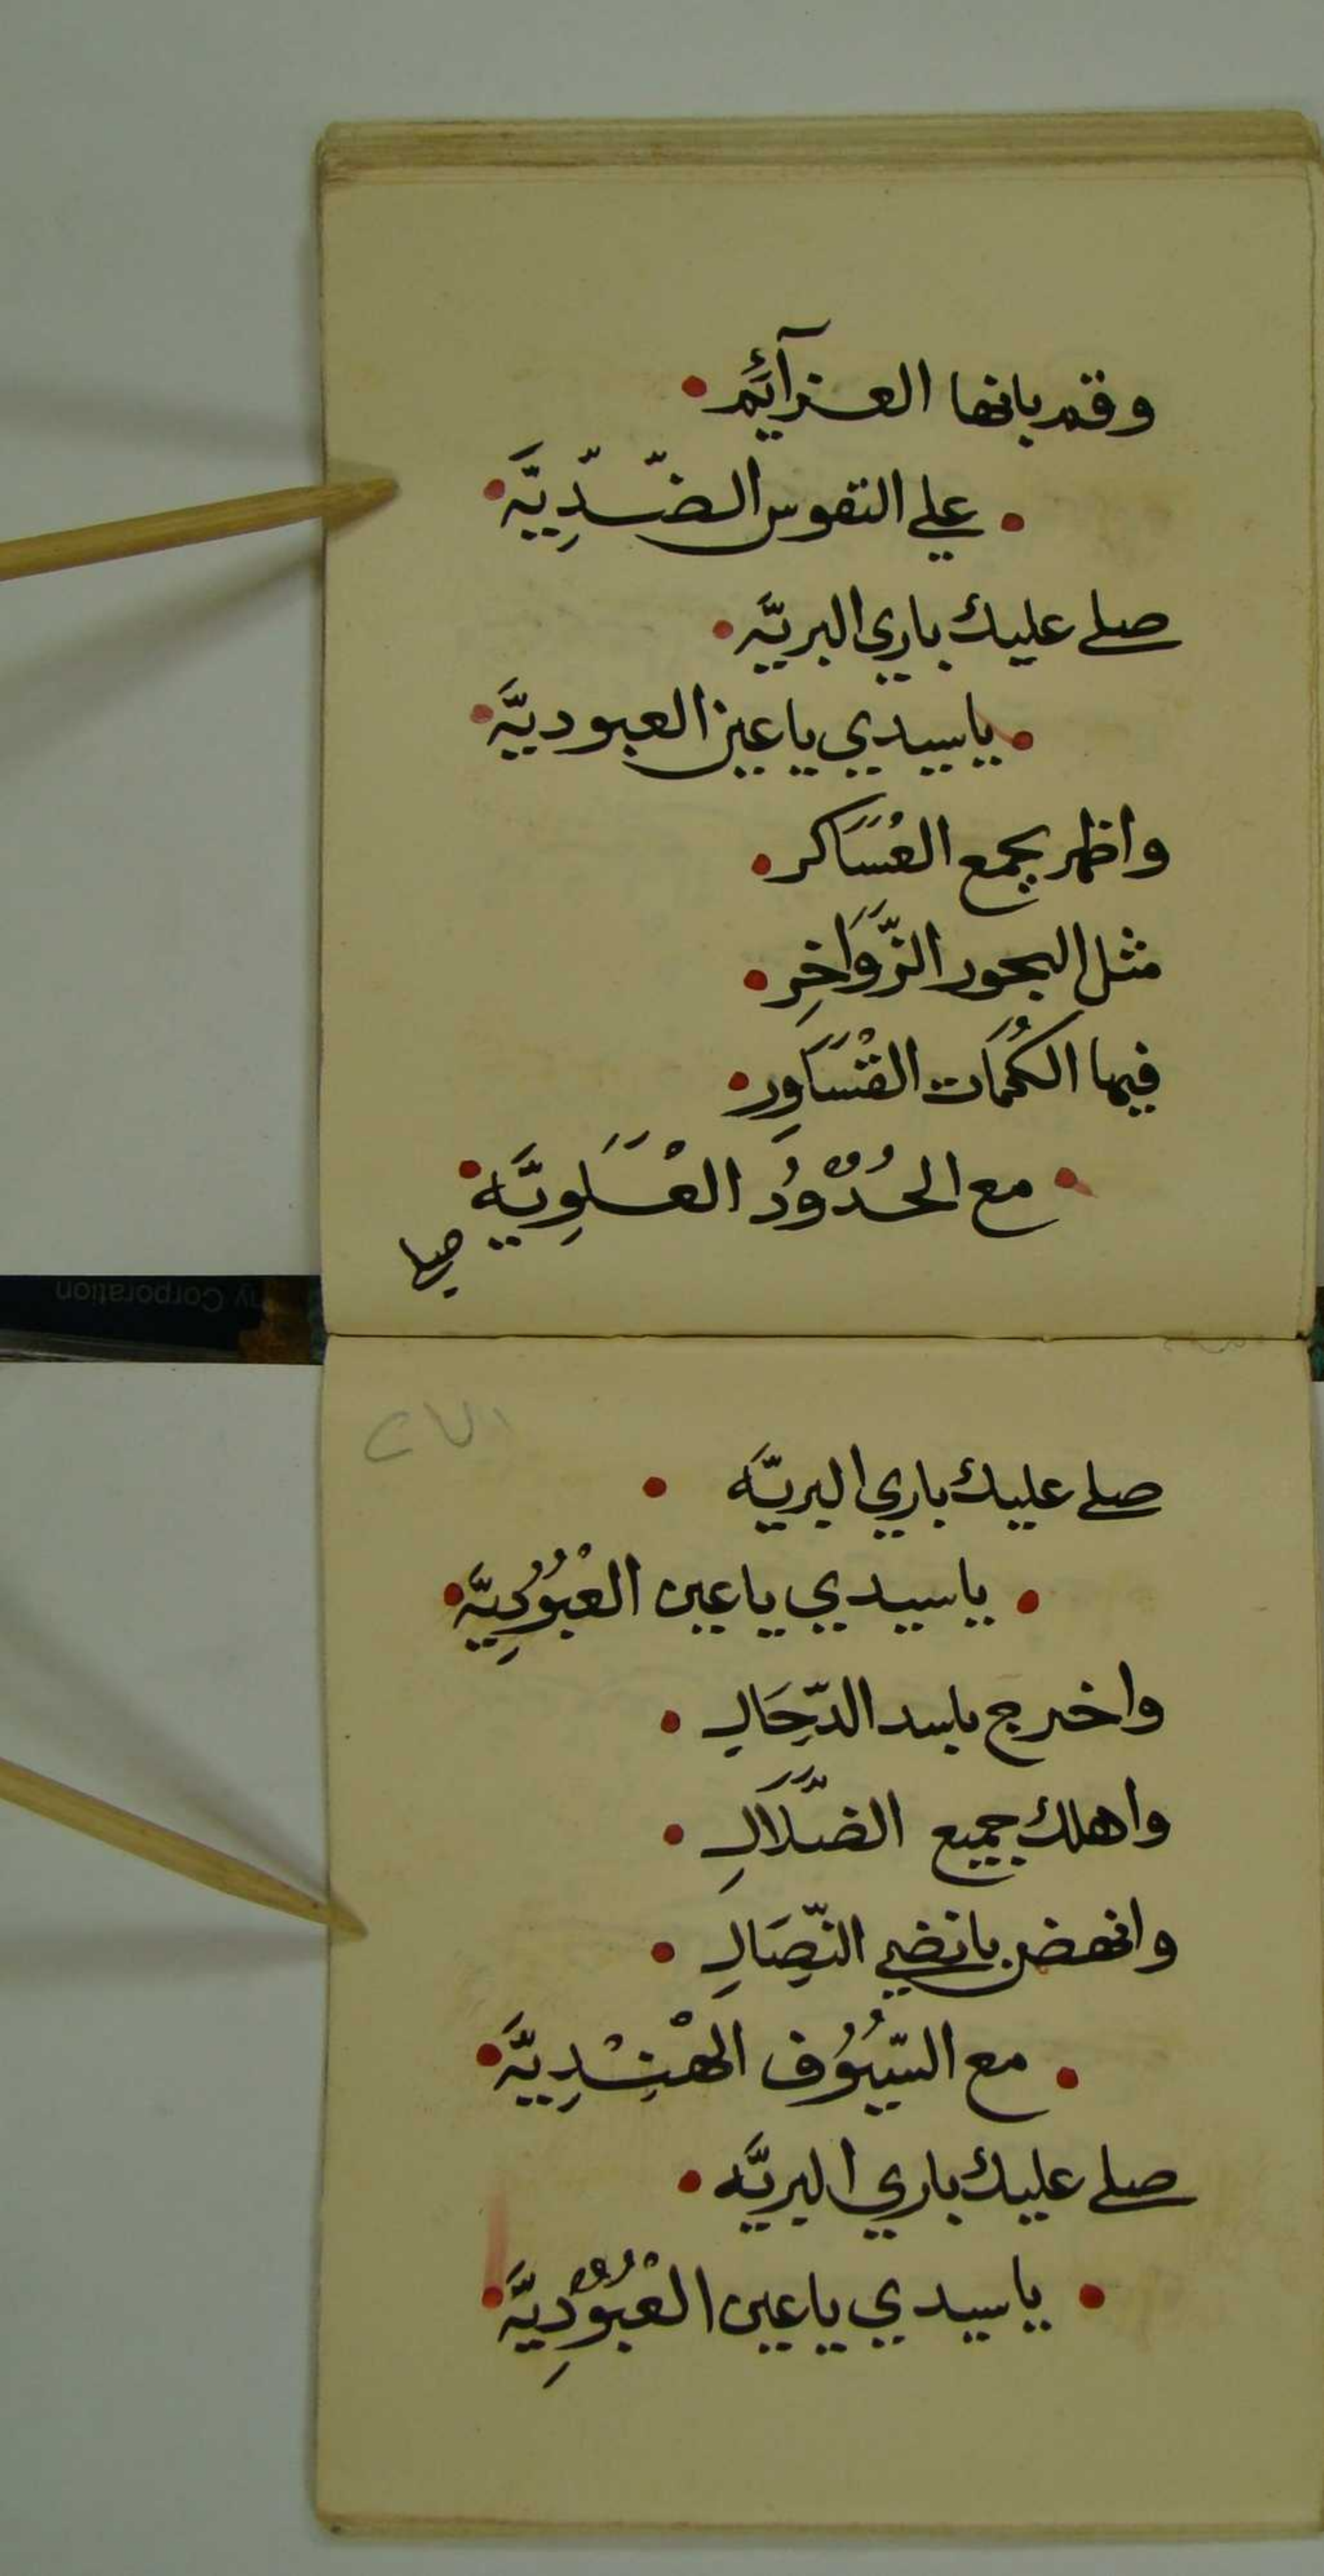 وقم بانها العزآئم •
• علي النفوس الضّدِيَّة •
صلے عليك باري البريَّه •
• ياسيدي يا عين العبوديَّة •
واظهر بجمع العْسَاكر •
مثل البحور الزَّوَاخِر •
فيها الكُمَات القْسَاوِر •
• مع الحُدُوْدُ العْلَوِيَّة •
صلے
٢٧١
صلے عليك باري البريَّه •
• ياسيدي يا عين العْبُوُدِيَّة •
واخرج بابسد الدّجَال •
واهلك جميع الضّلَّال •
وانهض بانضي النّصَالِ •
• مع السّيُوُف الهْنِدِيَّة •
صلے عليك باري البريَّه •
• ياسيدي يا عين العْبُوْدِيَّة •
ny Corporation